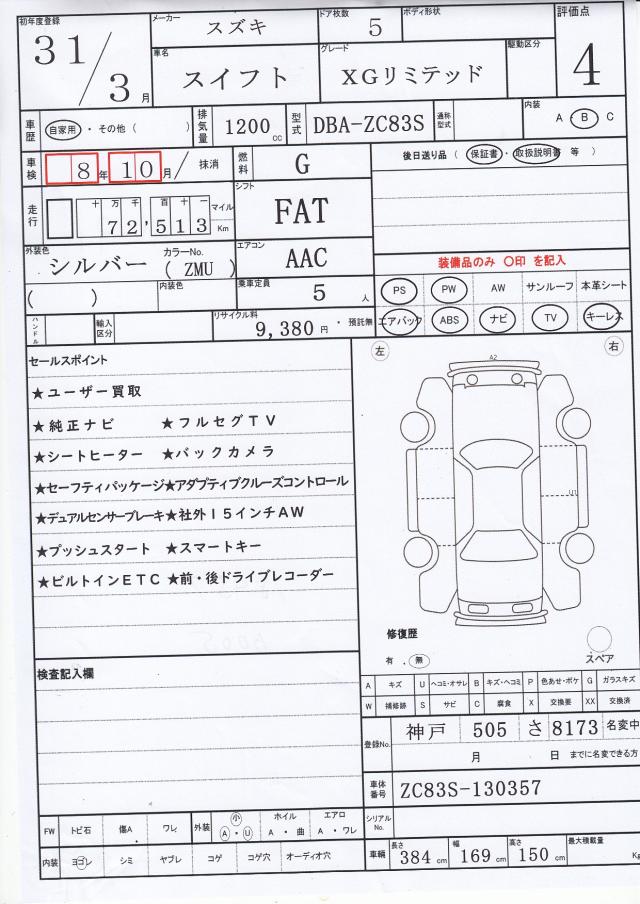 初年度登録 31/3月 メーカー スズキ ドア枚数 5 ボディ形状 評価点 4
車名 スイフト グレード XGリミテッド 駆動区分
車歴 自家用 ・ その他 ( ) 排気量 1200 cc 型式 DBA-ZC83S 通称型式 内装 A ・ B ・ C
車検 8年10月 / 抹消 燃料 G 後日送り品 ( 保証書 ・ 取扱説明書 等 )
走行 十 万 千 百 十 一 72,513 マイル Km シフト FAT
外装色 シルバー カラーNo. ( ZMU ) エアコン AAC 装備品のみ 〇印 を記入
( ) 内装色 乗車定員 5 人 PS PW AW サンルーフ 本革シート
ハンドル 輸入区分 リサイクル料 9,380 円 ・ 預託無 エアバック ABS ナビ TV キーレス
セールスポイント
★ユーザー買取
★純正ナビ ★フルセグTV
★シートヒーター ★バックカメラ
★セーフティパッケージ★アダプティブクルーズコントロール
★デュアルセンサーブレーキ★社外15インチAW
★プッシュスタート ★スマートキー
★ビルトインETC ★前・後ドライブレコーダー
左 右
A2
U1
修復歴
有 ・ 無
スペア
検査記入欄
A キズ U ヘコミ・オサレ B キズ・ヘコミ P 色あせ・ボケ G ガラスキズ
W 補修跡 S サビ C 腐食 X 交換要 XX 交換済
登録No. 神戸 505 さ 8173 名変中
月 日 までに名変できる方
車体番号 ZC83S-130357
シリアルNo.
FW トビ石 傷A ワレ 外装 小 A ・ U ホイル A ・ 曲 エアロ A ・ ワレ
内装 ヨゴレ シミ ヤブレ コゲ コゲ穴 オーディオ穴 車輌 長さ 384 cm 幅 169 cm 高さ 150 cm 最大積載量 Kg